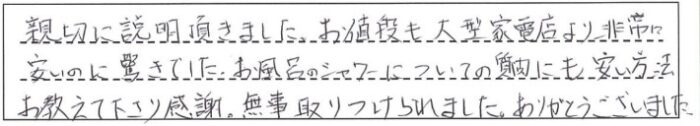 親切に説明頂きました。お値段も大型家電店より非常に
安いのに驚きでした。お風呂のシャワーについての質問にも、安い方法
お教えて下さり感謝。無事取りつけられました。ありがとうございました